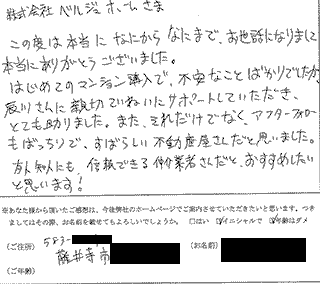 株式会社 ベルジェホームさま
この度は本当に なにから なにまで、お世話になりまして
本当にありがとうございました。
はじめてのマンション購入で、不安なことばかりでしたが、
辰川さんに親切ていねいにサポートしていただき、
とても助かりました。また、それだけでなく、アフターフォロー
もばっちりで、すばらしい不動産屋さんだと思いました。
友人知人にも、信頼できる仲介業者さんだと、おすすめしたい
と思います!
※あなた様から頂いたご感想は、今後弊社のホームページでご案内させていただきたいと思います。つき
ましてはその際、お名前を載せてもよろしいでしょうか。 □はい ☑イニシャルで ☑年齢はダメ
(ご住所) 583-
藤井寺市
(お名前)
(ご年齢)